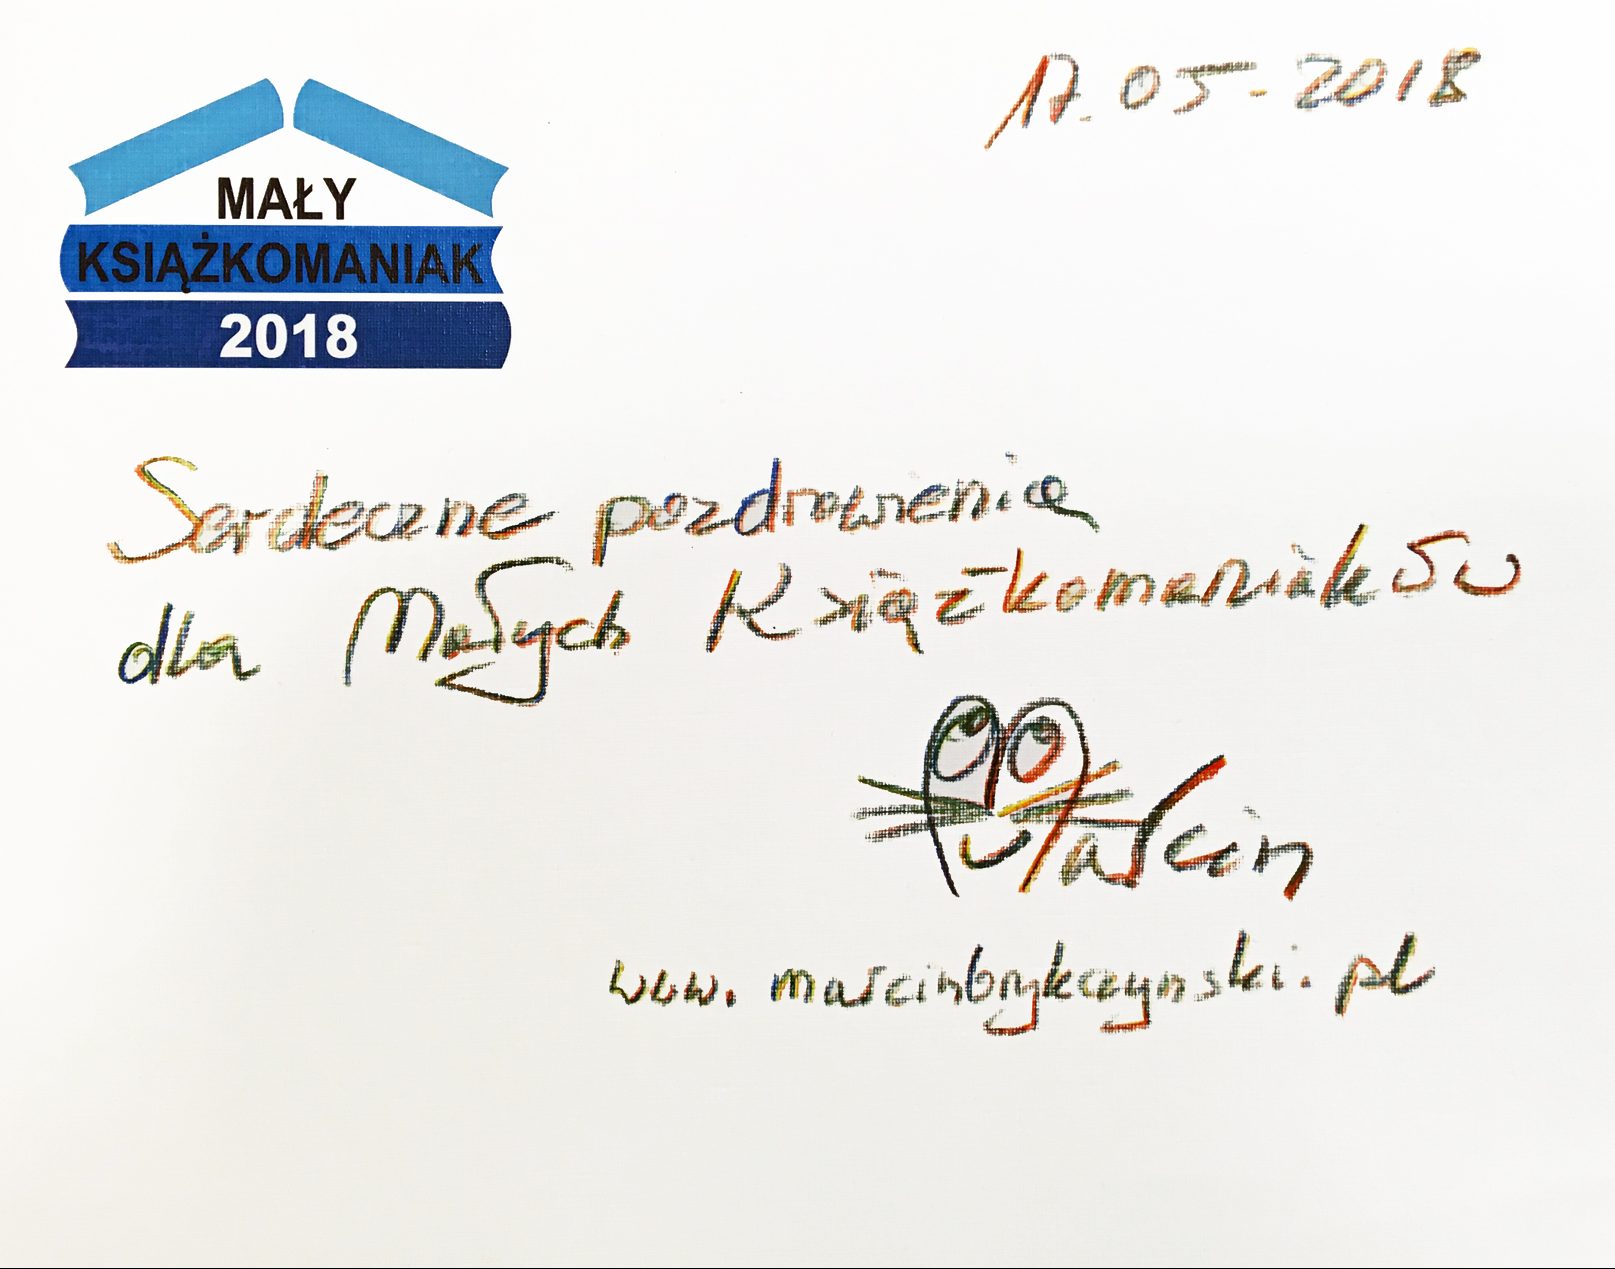 17.05-2018
MAŁY
KSIĄŻKOMANIAK
2018
Serdeczne pozdrowienia
dla Małych Książkomaniaków
Marcin
www.marcinbrykczynski.pl